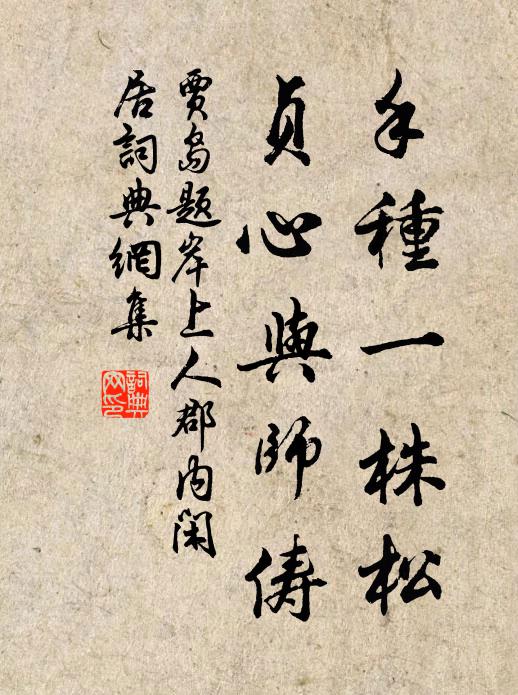 手種一株松
貞心與師儔
賈島題岸上人郡內閑
居詞典網集
詞典網印